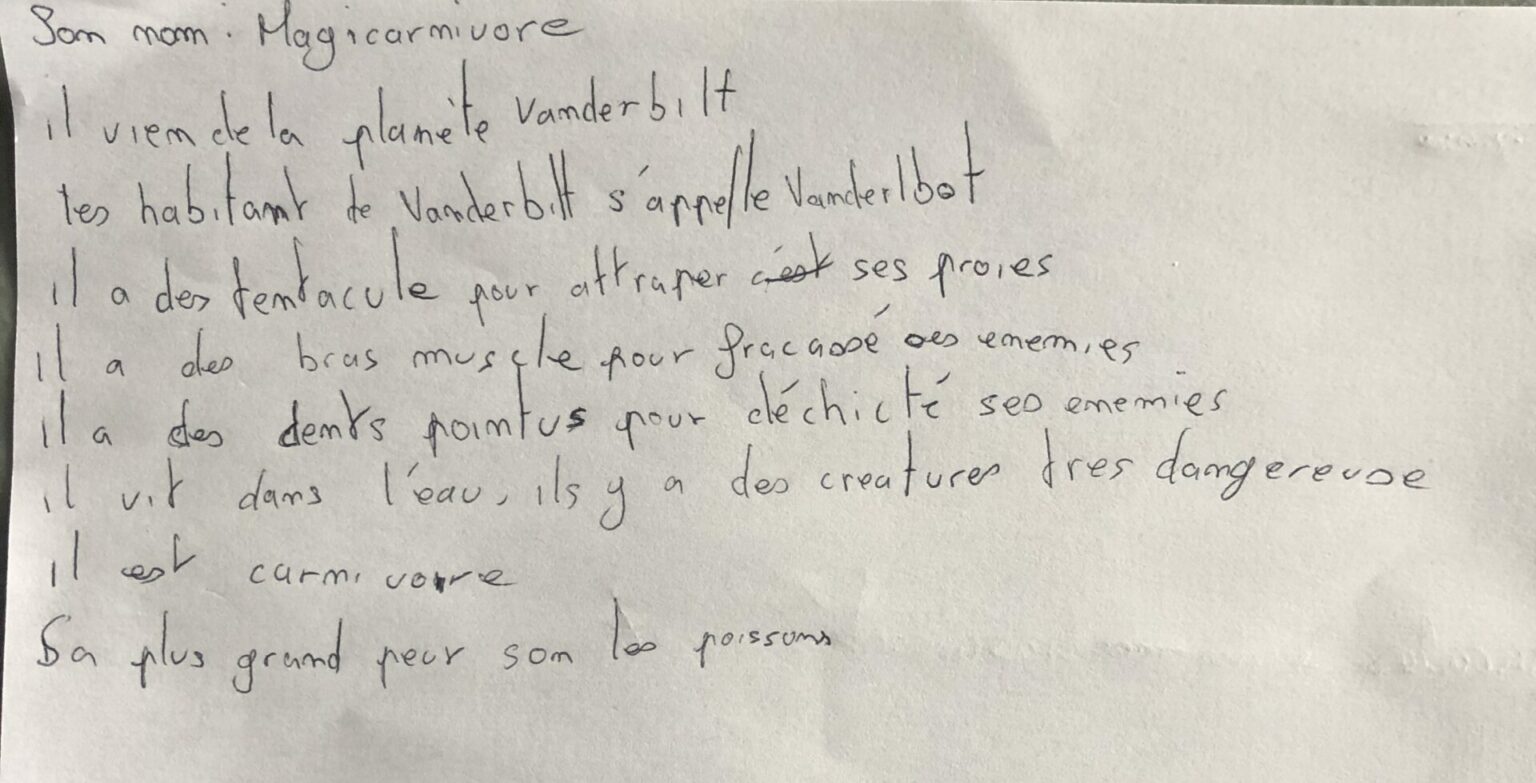 Son nom : Magicarnivore
il vien de la planète Vanderbilt
les habitant de Vanderbilt s'appelle Vanderlbot
il a des tentacule pour attraper c'est ses proies
Il a des bras muscle pour fracassé ses enemies
il a des dents pointus pour déchicté ses enemies
il vit dans l'eau, ils y a des creatures tres dangereuse
il est carnivore
Sa plus grand peur son les poissons